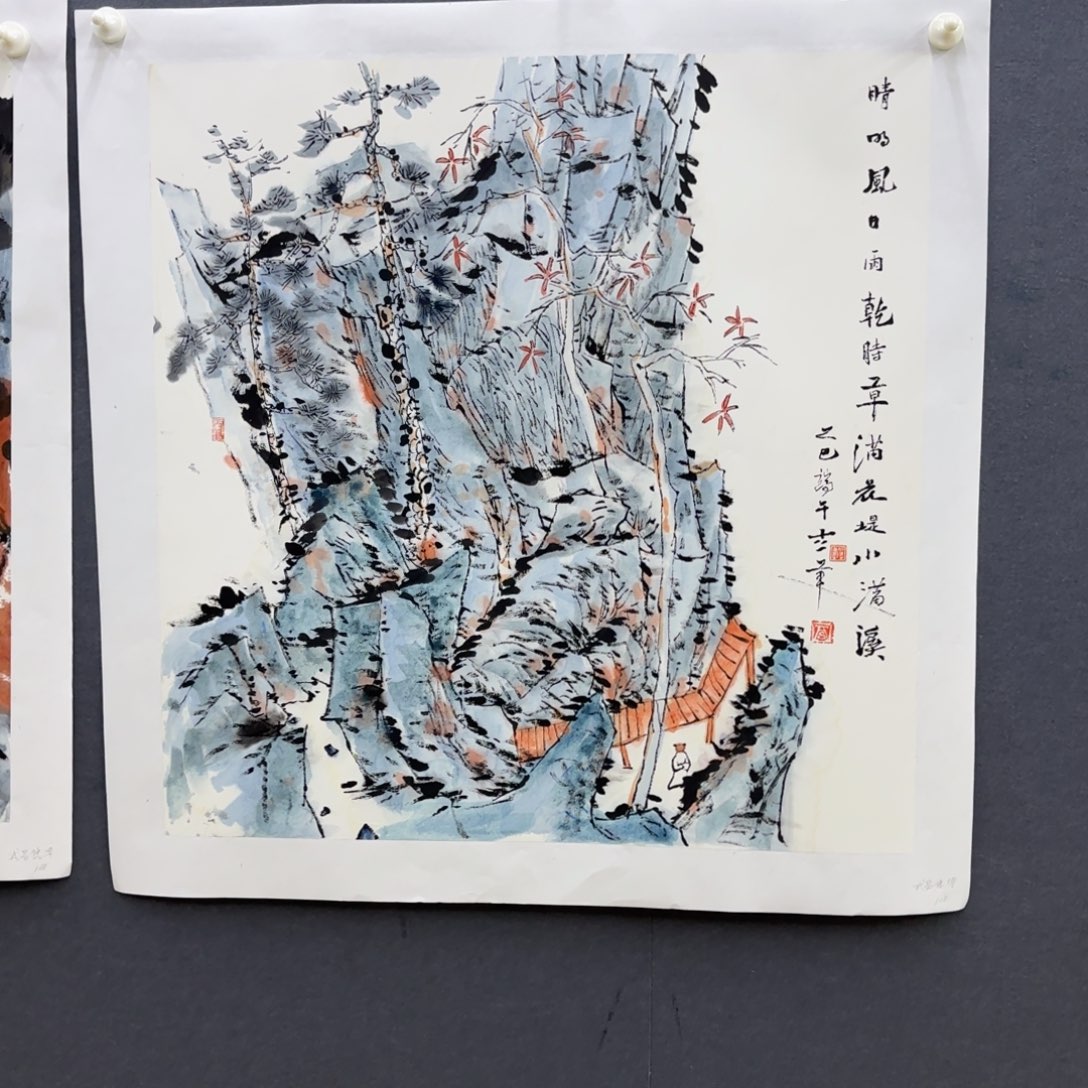 晴明風日雨乾時草滿花堤水滿溪
乙巳端午